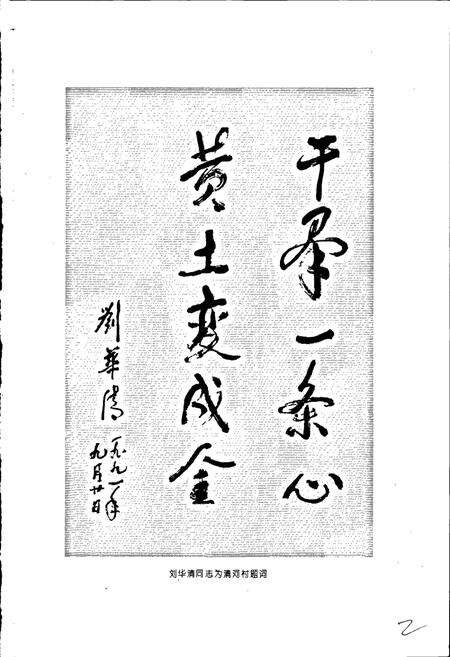 干群一条心
黄土变成金
刘华清
一九九一年
九月廿日
刘华清同志为清河村题词
2